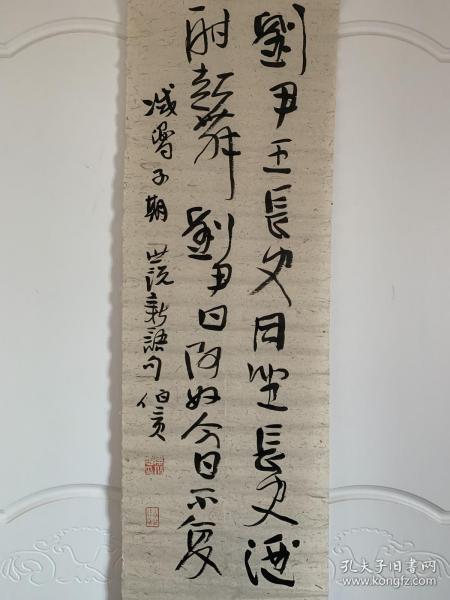 劉尹王長史同坐長史酒
酣起舞劉尹曰阿奴今日不復
減嚮子期 世説新語句 伯
孔夫子旧书网
www.kongfz.com